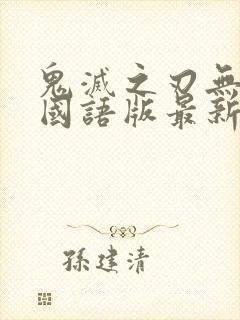 鬼滅之刃無
國語版最新
孫建清